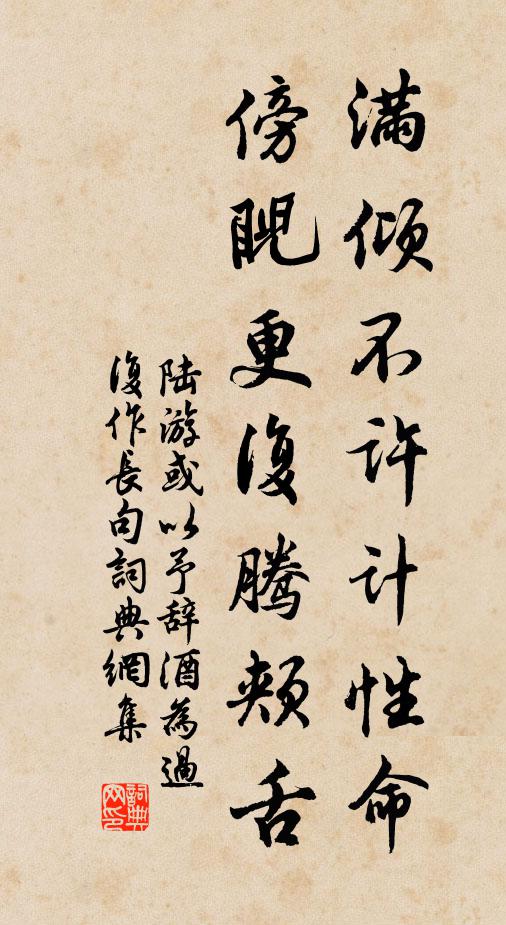 满倾不许计性命
傍睨更復腾颊舌
陆游或以予辞酒為過
復作長句詞典網集
詞典网印